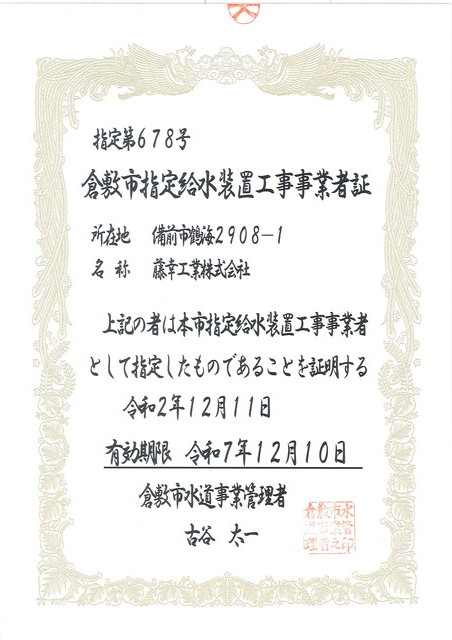 指定第678号
倉敷市指定給水装置工事事業者証
所在地 備前市鶴海2908-1
名称 藤幸工業株式会社
上記の者は本市指定給水装置工事事業者
として指定したものであることを証明する
令和2年12月11日
有効期限 令和7年12月10日
倉敷市水道事業管理者
古谷 太一